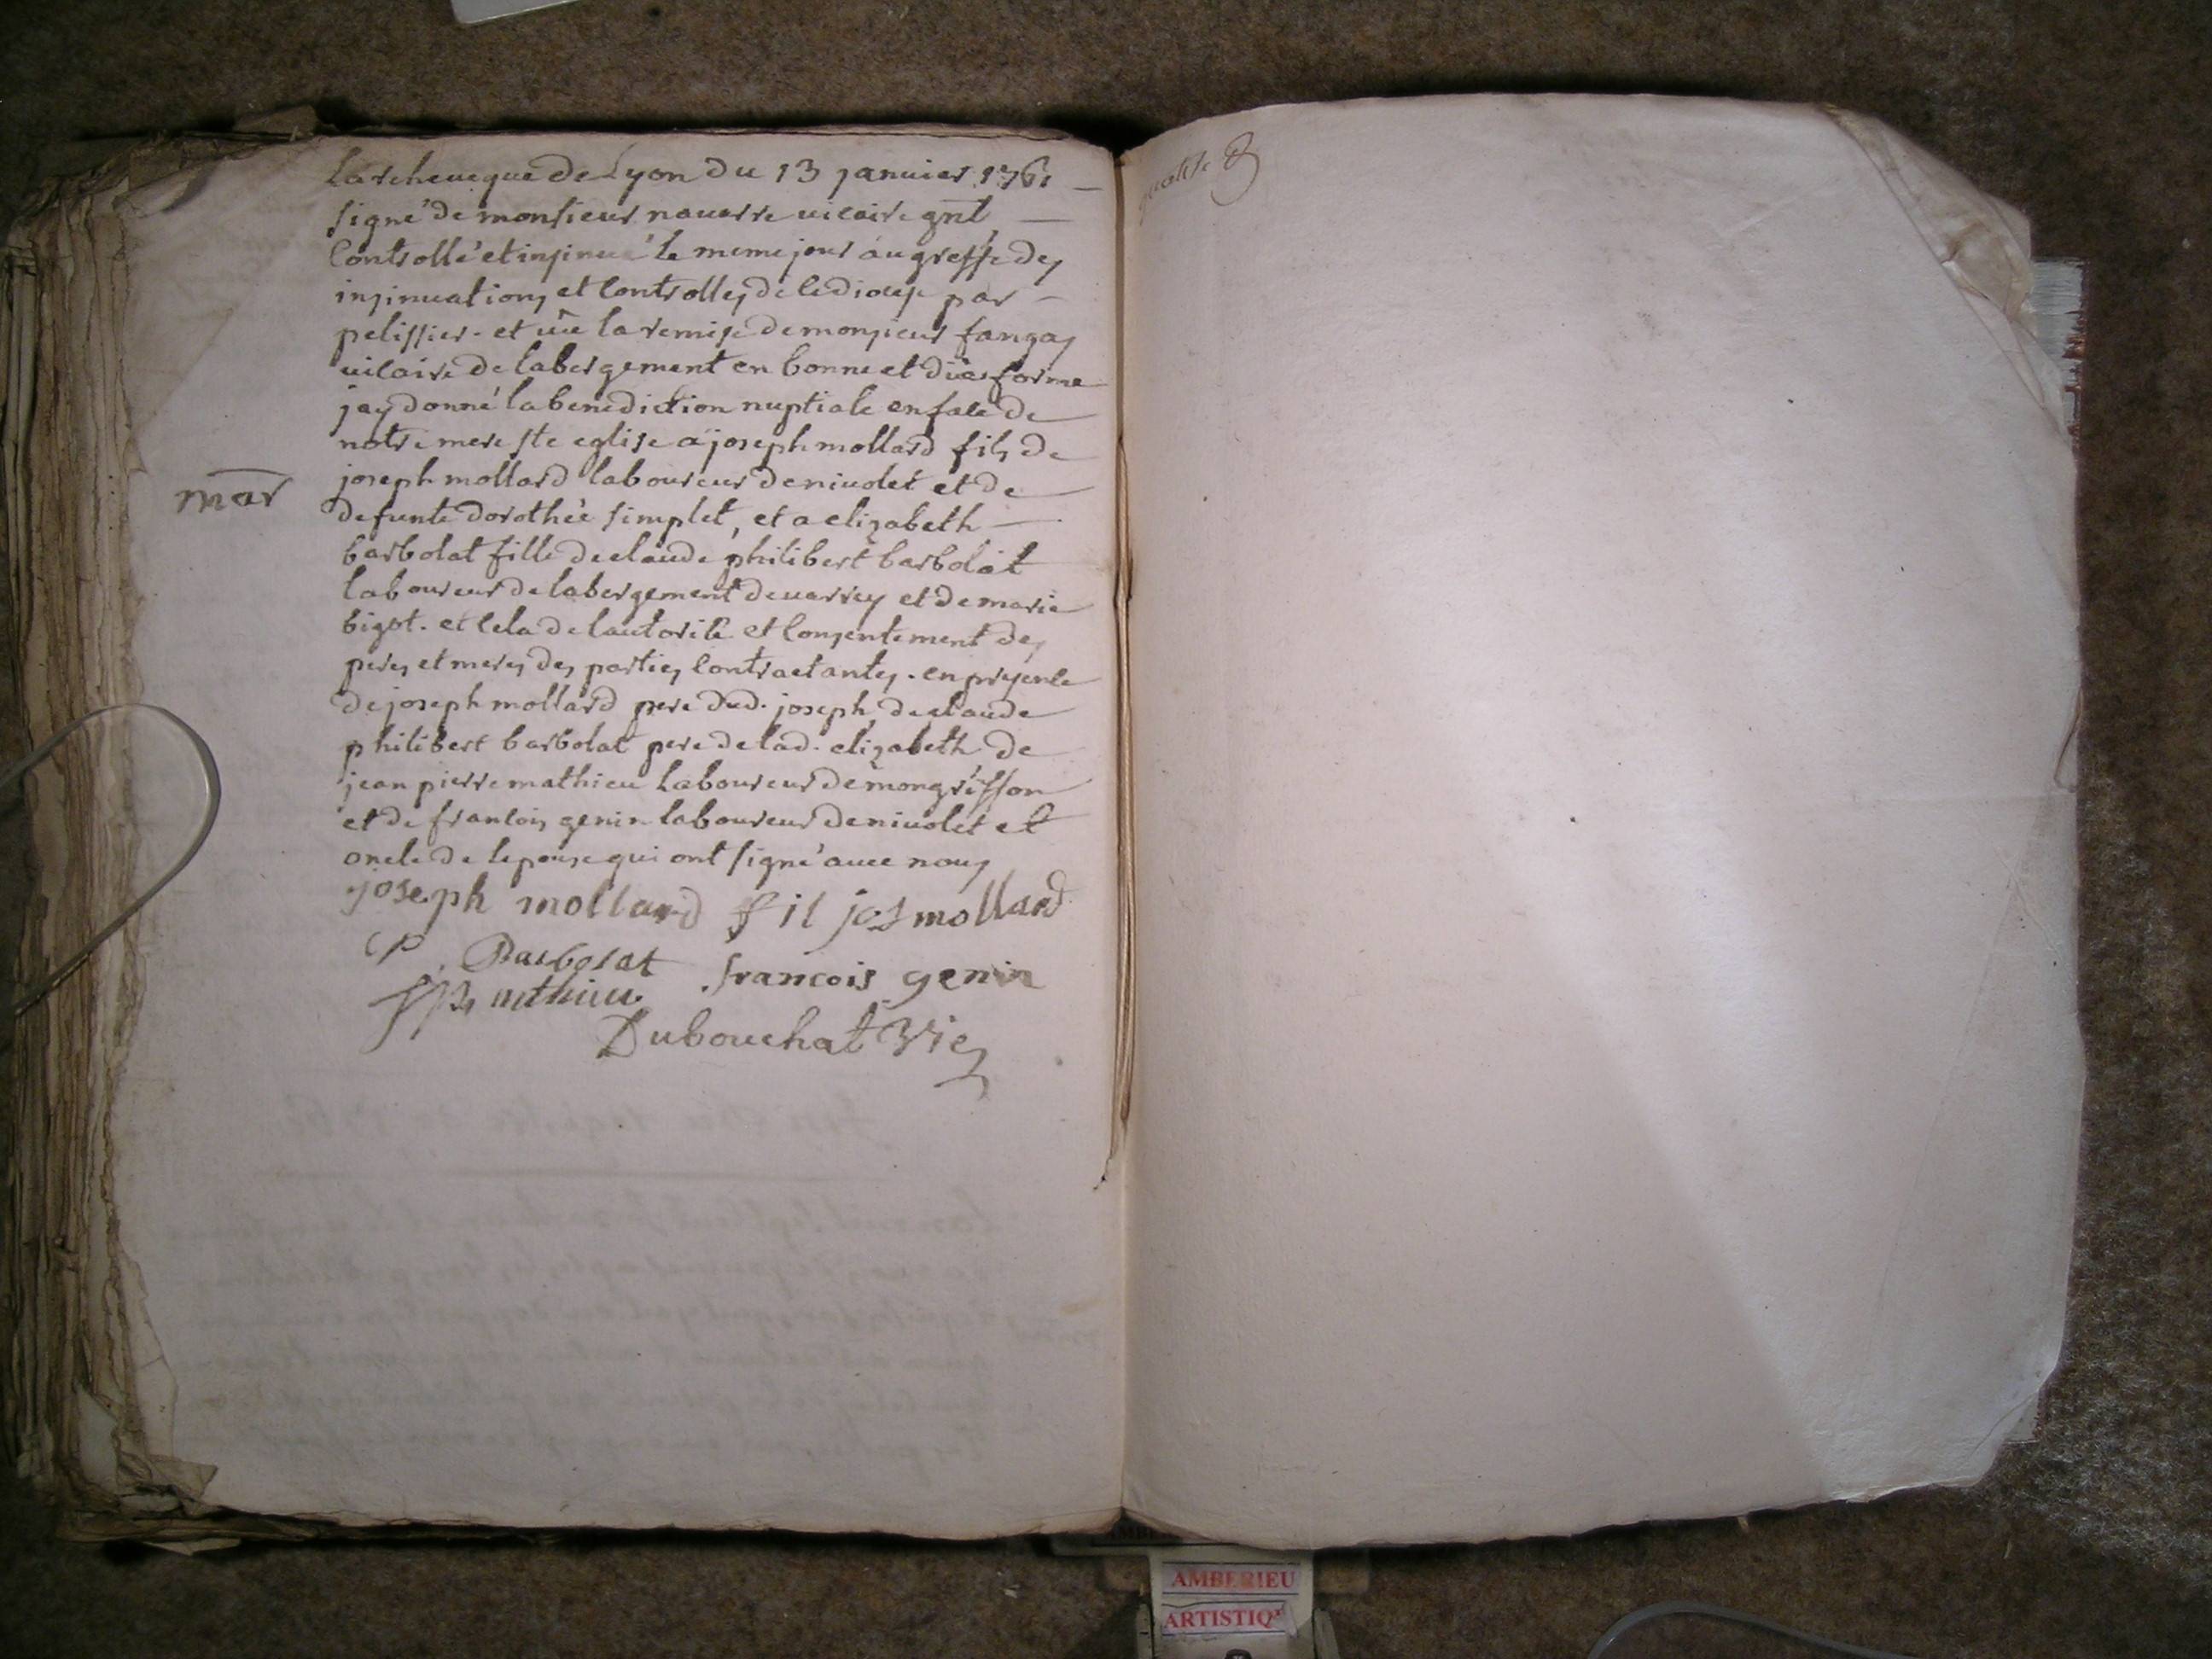 Larcheueque de Lyon du 13 januier 1761
signé de monsieur nauarre uicaire gnl
Controllé et insinué le meme jour au greffe des
insinuations et Controlles de ce diocese par
pelissier. et uüe la remise de monsieur fangas
uicaire de labergement en bonne et düe forme
jay donné la benediction nuptiale en face de
notre mere ste eglise a joseph mollard fils de
mar
joseph mollard laboureur de niuolet et de
defunte dorothée simplet, et a elizabeth
barbolat fille de claude philibert barbolat
laboureur de labergement de uarrey et de marie
bigot. et Cela de lautorité et Consentement des
peres et meres des parties Contractantes. en presence
de joseph mollard pere dud. joseph, de claude
philibert barbolat pere de lad. elizabeth de
jean pierre mathieu laboureur de mongriffon
et de francois genin laboureur de niuolet et
oncle de lepouse qui ont signé auec nous
joseph mollard fil jos mollard
CP. Barbolat francois genin
mthieu
Dubouchat Vic
AMBERIEU
ARTISTIQ